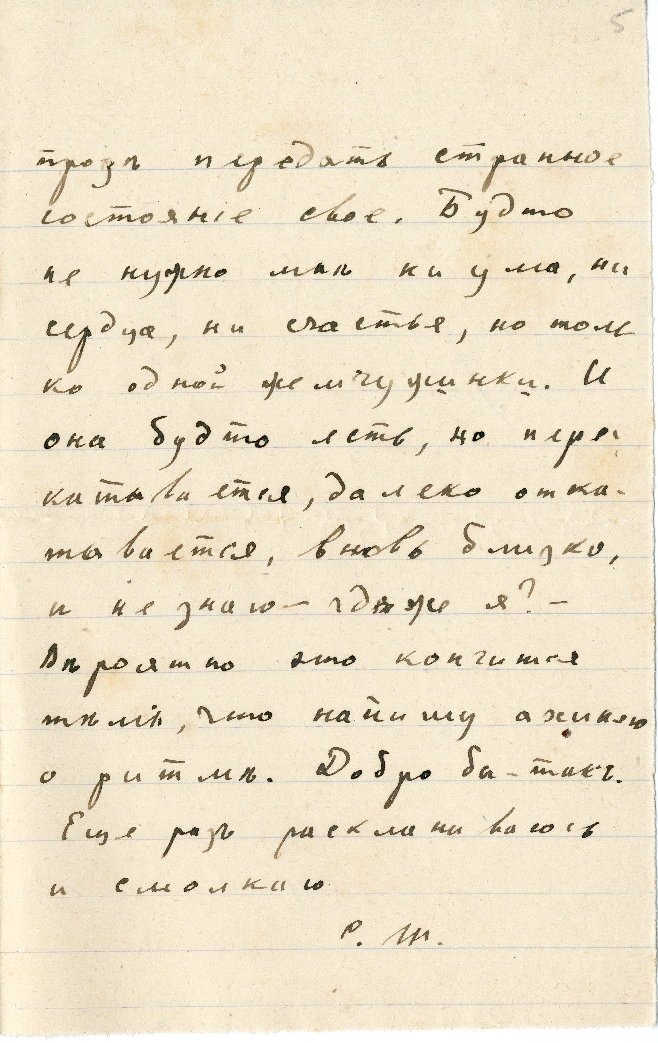 5
прозѣ передать странное
состоянiе свое. Будто
не нужно мнѣ ни ума, ни
сердца, ни счастья, но толь
ко одной жемчужинки. И
она будто есть, но пере-
катывается, далеко отка-
тывается, вновь близко,
и не знаю — гдѣ же я? —
Вѣроятно это кончится
тѣмъ, что напишу ахинею
о ритмѣ. Добро бы – такъ.
Еще разъ раскланиваюсь
и смолкаю
Р. Т.